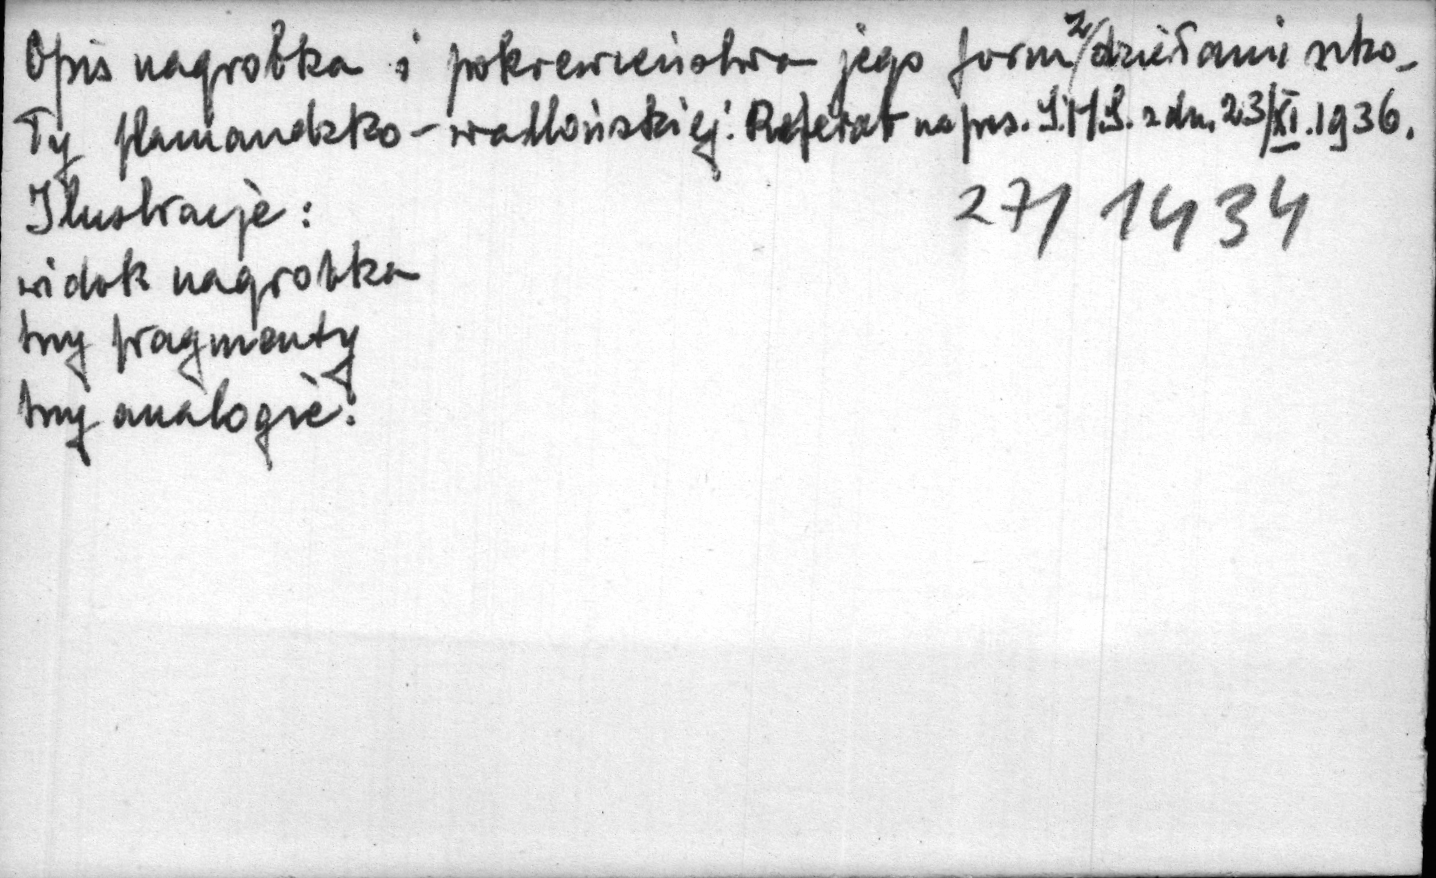 Opis nagrobka i pokrewieństwa jego form z dziełami szko-
ły flamandzko-wallońskiej. Referat na pos. S.H.S. z dn. 23/XI.1936.
27/1434
Ilustracje:
widok nagrobka
trzy fragmenty
trzy analogie.